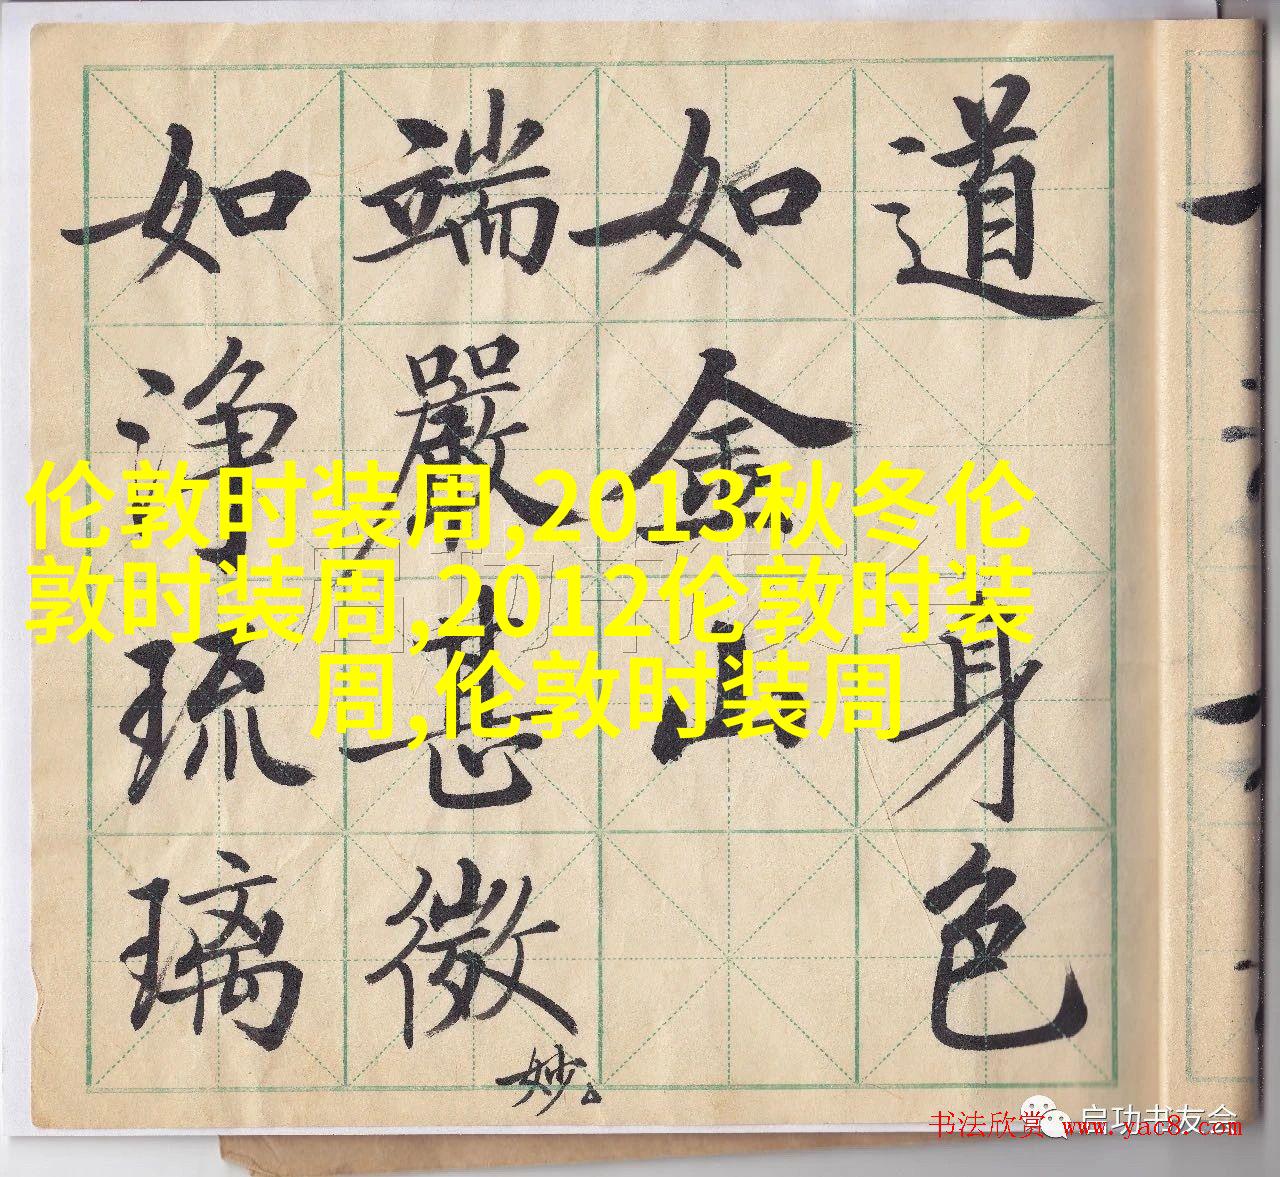 道 身色
如金山
端嚴甚微妙
如淨琉璃
伦敦时装周,2013秋冬伦
敦时装周,2012伦敦时装
周,伦敦时装周
启功书友会
书法欣赏 www.yac8.com